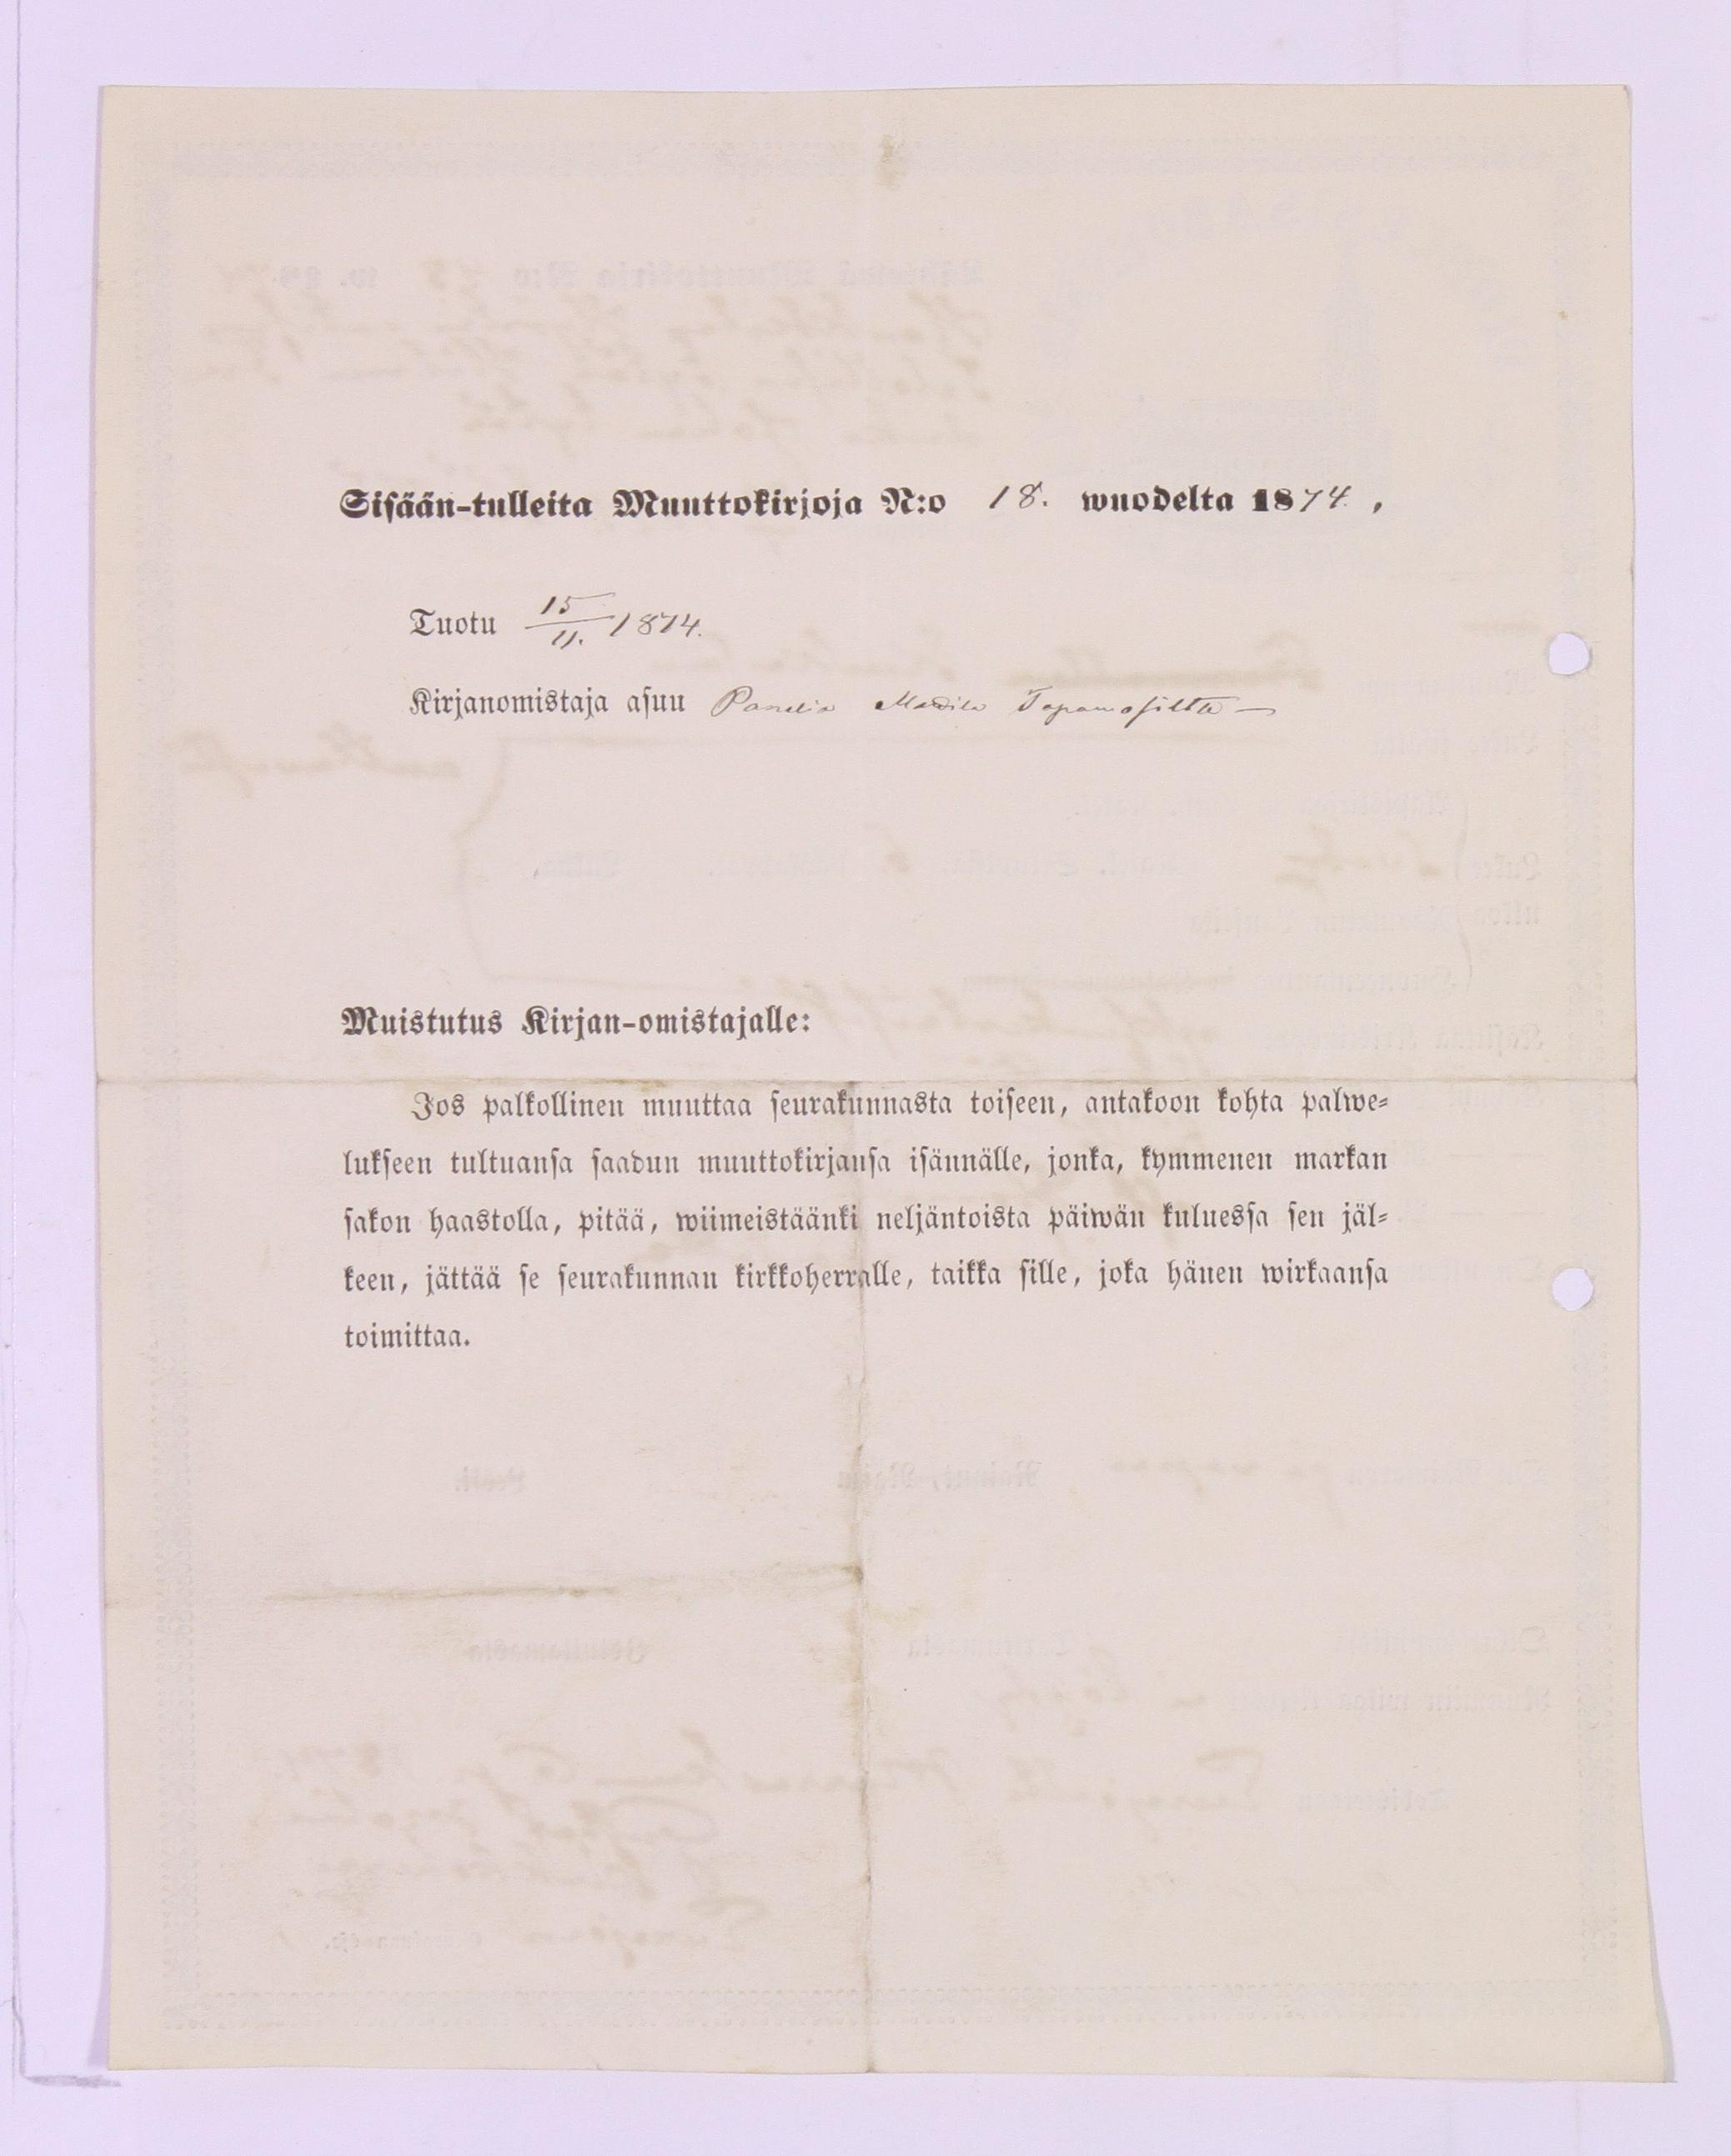 Sisään-tulleita Muuttokirjoja N:o 18. wuodelta 1874.,
Tuotu 15/11. 1874.
Kirjanomistaja asuu Panelia
Muistutus Kirjan-omistajalle:
Jos palkollinen muuttaa seurakunnasta toiseen, antakoon kohta palwe-
lukseen tultuansa saadun muuttokirjansa isännälle, jonka, kymmenen markan
sakon haastolla, pitää, wiimeistäänki neljäntoista päiwän kuluessa sen jäl-
keen, jättää se seurakunnan kirkkoherralle, taikka sille, joka hänen wirkaansa
toimittaa.